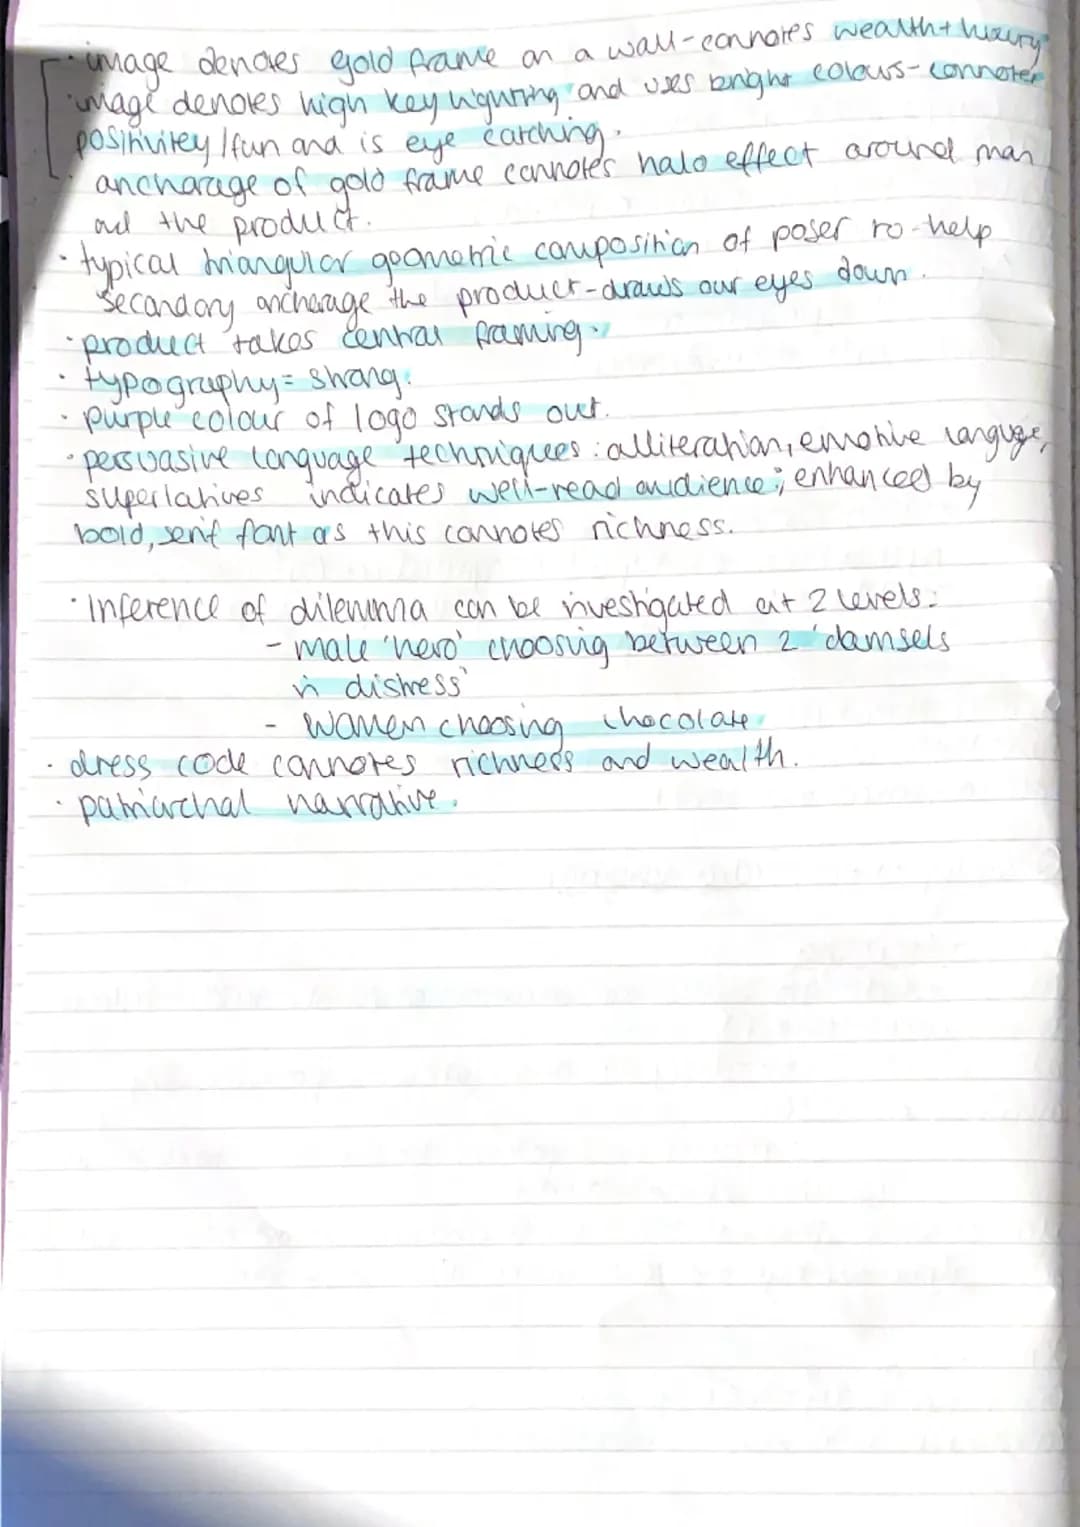 · image denotes gold frame on a wall-connotes wealth+luxury
· image denotes high key lighting and uses bright colours-connotes
positivitey/fun and is eye catching.
· anchorage of gold frame connotes halo effect around man
and the product.
· typical triangular geometric composition of poser to help
secondary anchorage the product-draws our eyes down.
· product takes central framing.
· typography= strong.
· purple colour of logo stands out.
· persuasive language techniques: alliteration, emotive languge,
superlatives indicates well-read audience; enhanced by
bold, serif font as this connotes richness.
· Inference of dilemma can be investigated at 2 levels:
- male 'hero' choosing between 2 'damsels
in distress'
- women choosing chocolate.
· dress code connotes richness and wealth.
· patriarchal narrative.